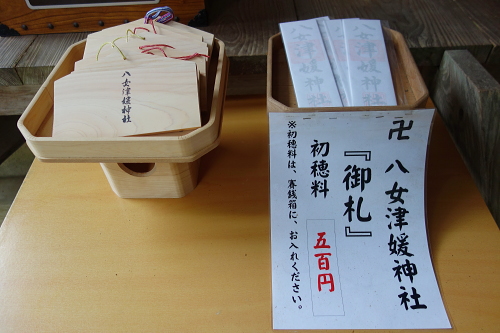 八女津媛神社
八女津媛神社
八女津媛神社
卍 八女津媛神社
『御札』
初穂料 五百円
※初穂料は、賽銭箱に、お入れください。